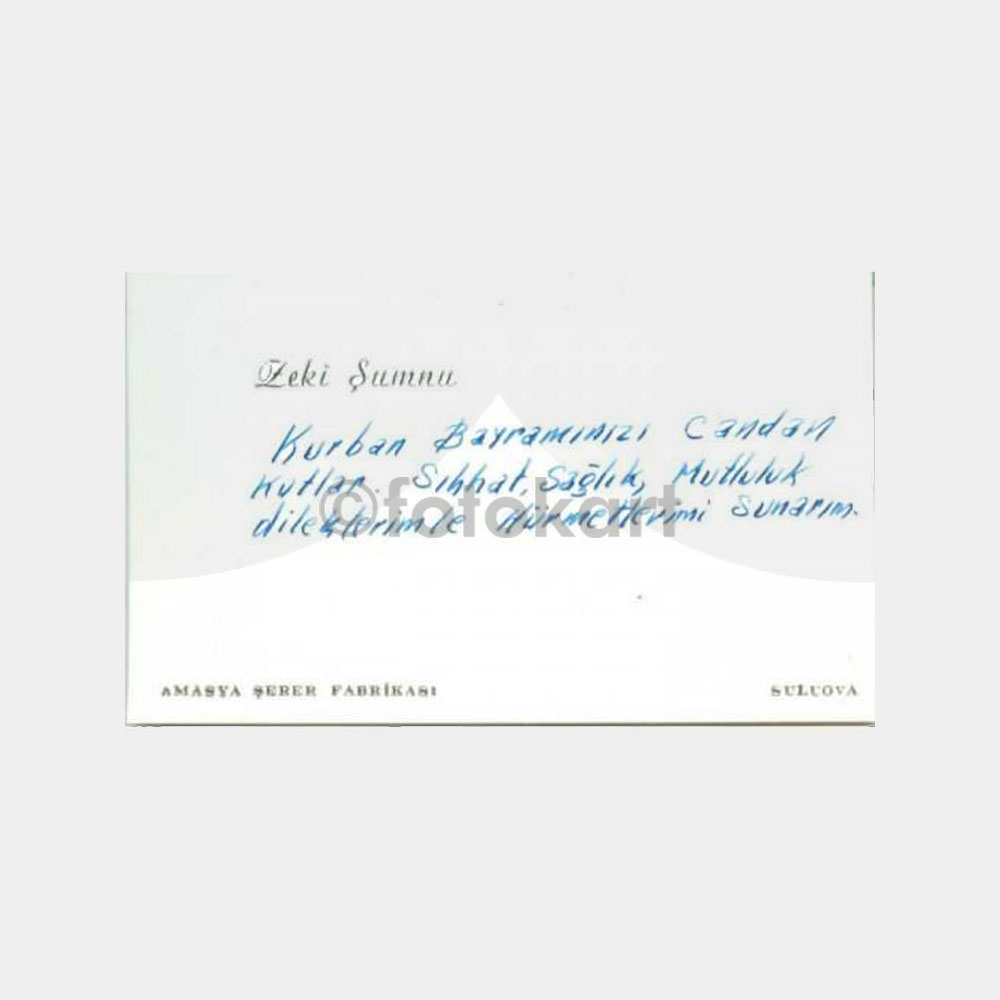 Zeki Şumnu
Kurban Bayramınızı Candan
Kutlar Sıhhat, Sağlık, Mutluluk
©fotokart
dileklerimle Hürmetlerimi Sunarım.
AMASYA ŞEKER FABRİKASI SULUOVA